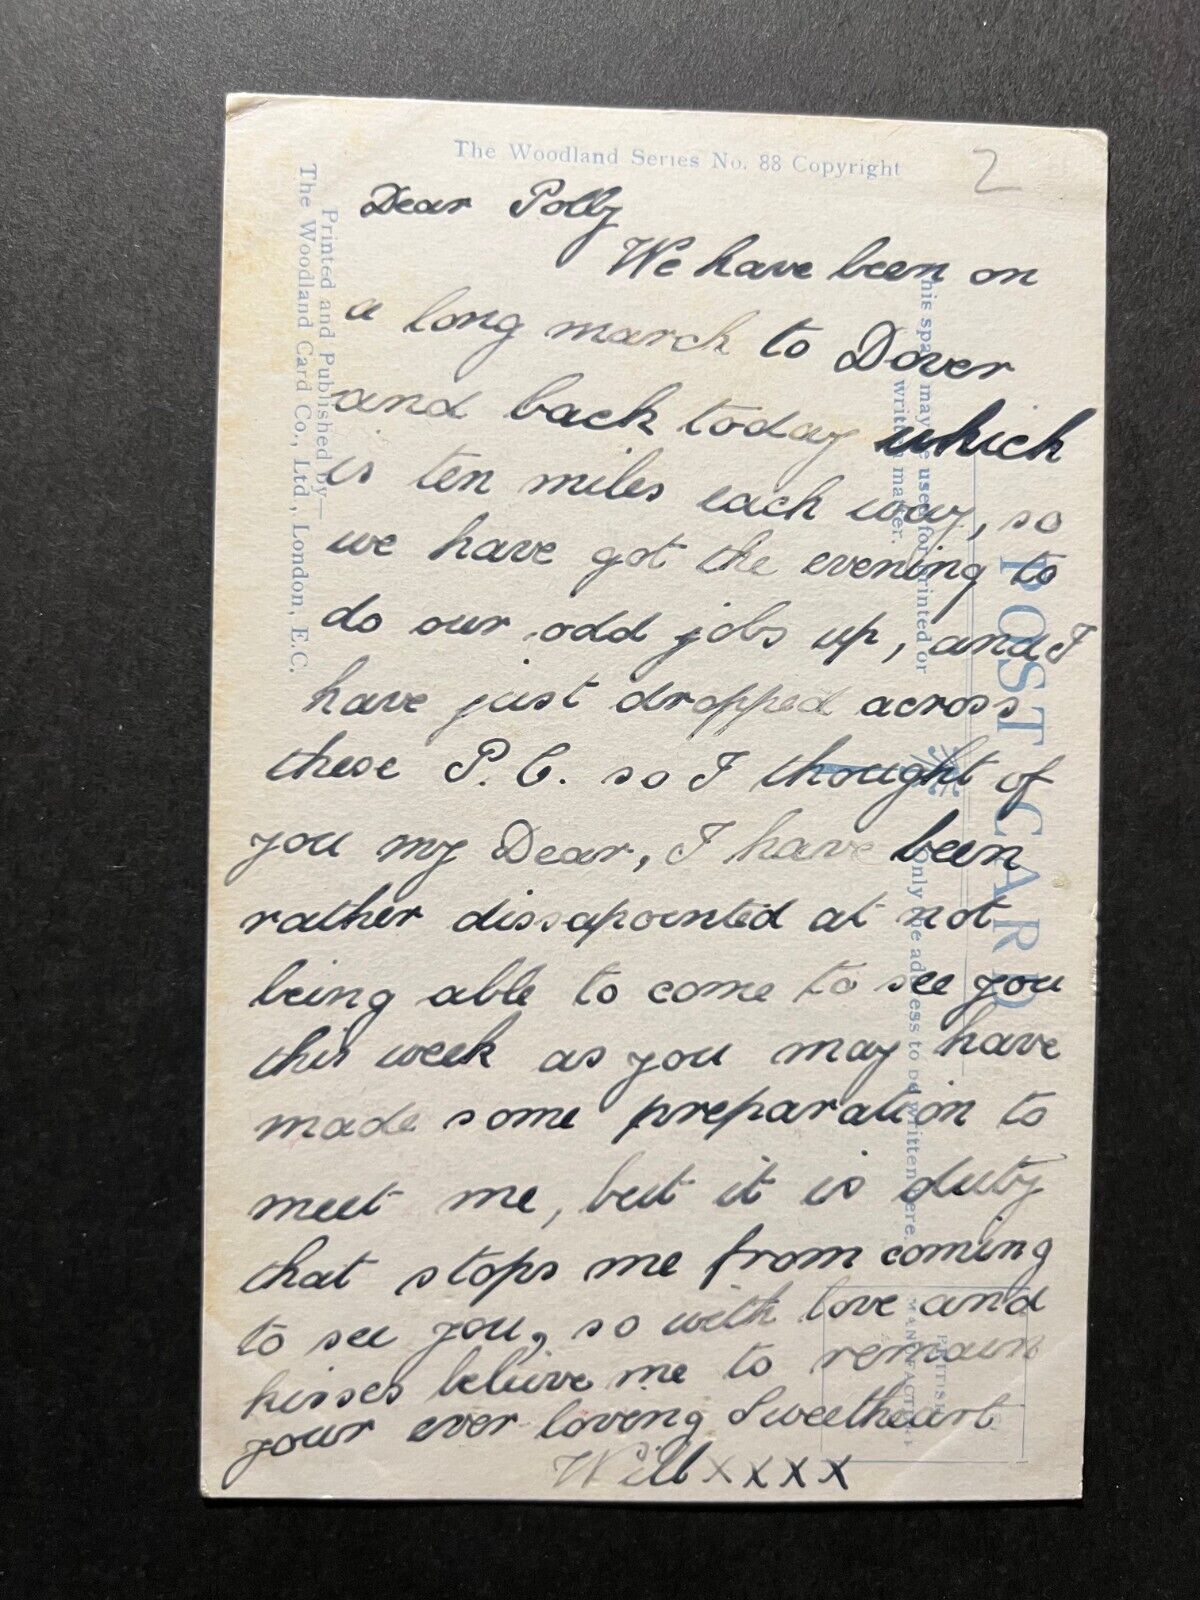 The Woodland Series No. 88 Copyright
2
Printed and Published by—
The Woodland Card Co., Ltd., London, E.C.
Dear Polly
We have been on
a long march to Dover
and back today which
is ten miles each way, so
we have got the evening to
do our odd jobs up, and I
have just dropped across
these P.C. so I thought of
you my Dear, I have been
rather dissapointed at not
being able to come to see you
this week as you may have
made some preparation to
meet me, but it is duty
that stops me from coming
to see you, so with love and
kisses believe me to remain
your ever loving Sweetheart
Will x x x x
This space may be used for printed or
written matter.
POST CARD
Only the address to be written here.
BRITISH
MANUFACTURE